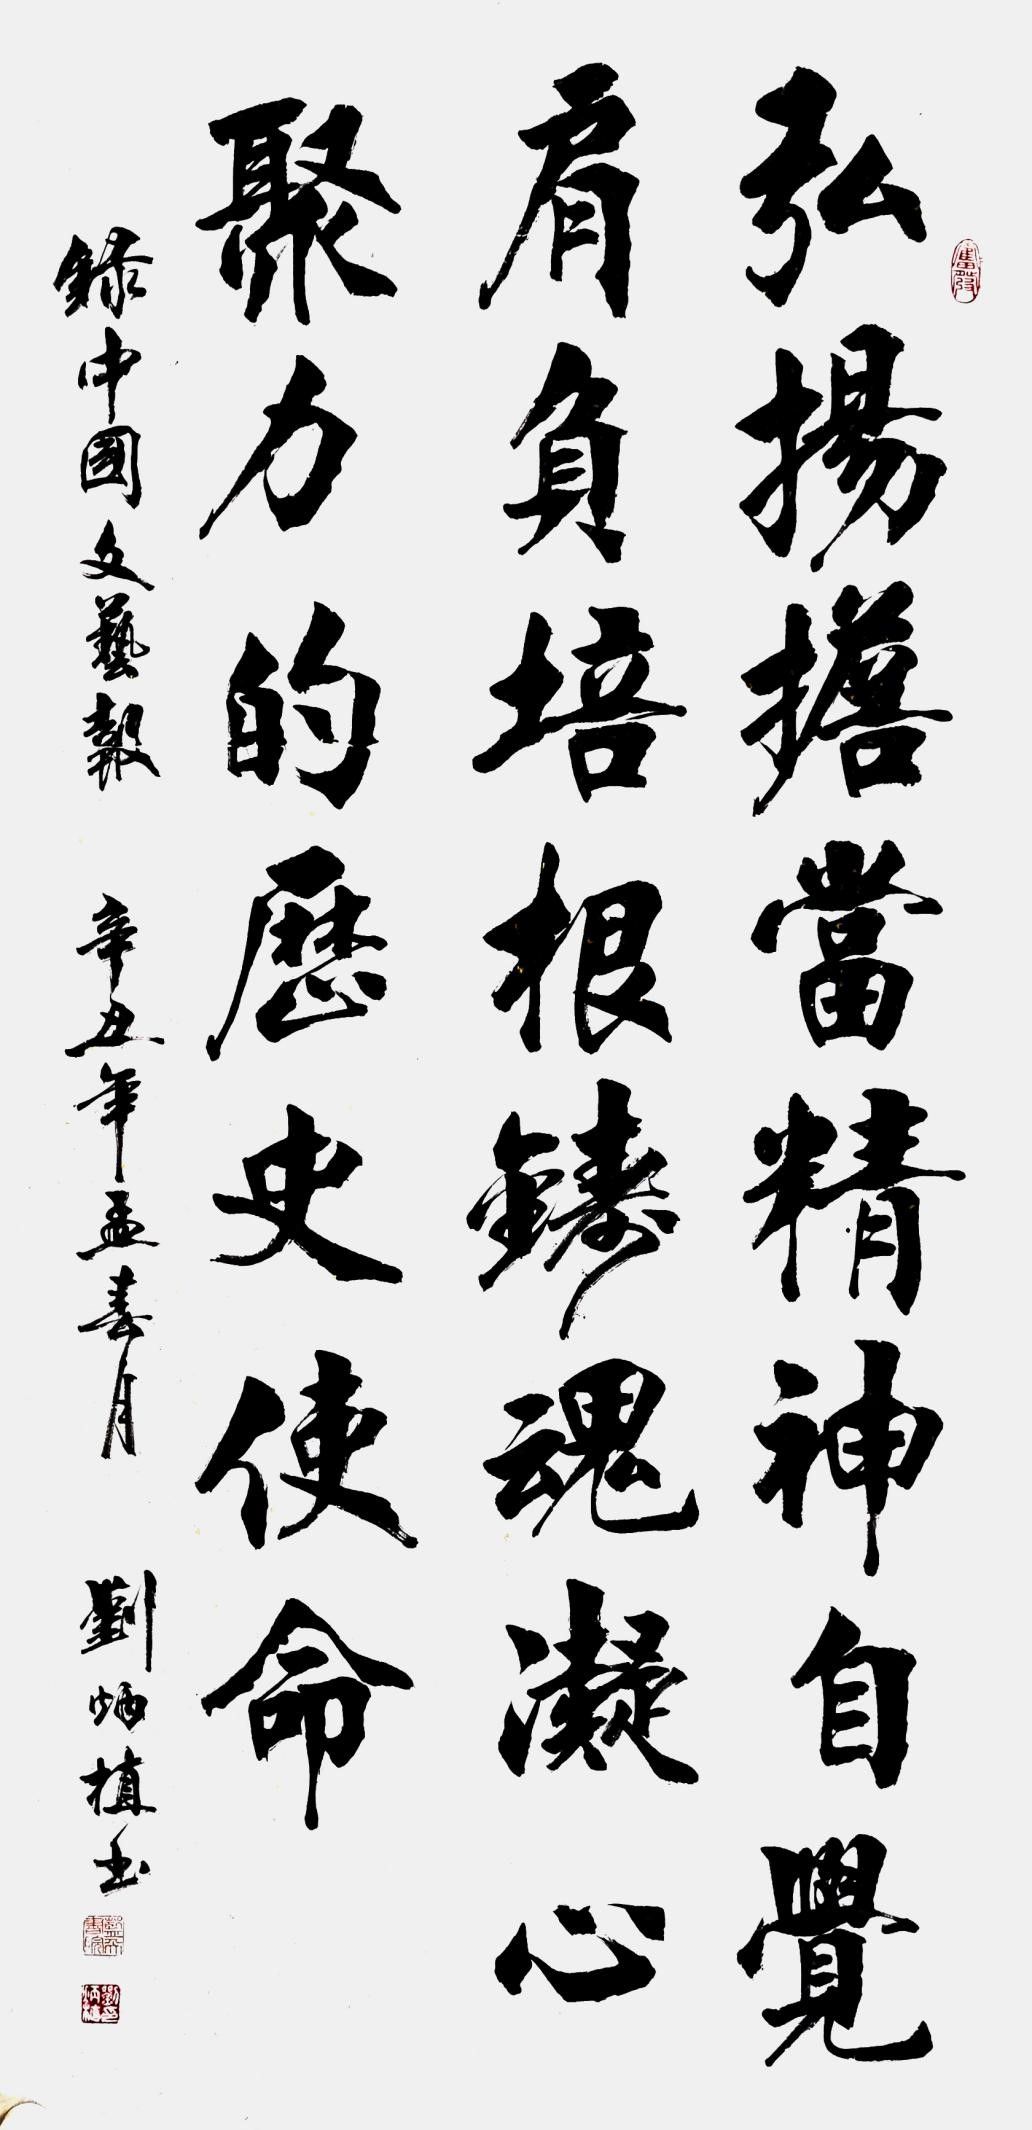 弘揚擔當精神自覺
肩負培根鑄魂凝心
聚力的歷史使命
錄中國文藝報 辛丑年孟春月 劉炳植书